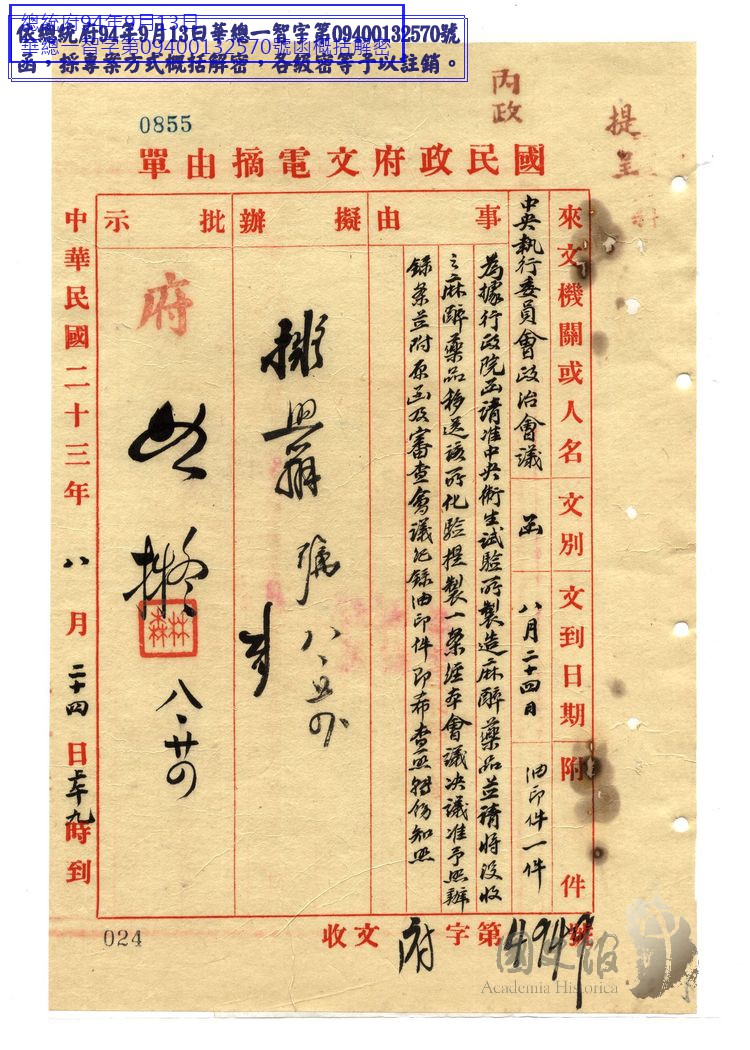 總統府94年9月13日
華總一智字第09400132570號函概括解密
依總統府94年9月13日華總一智字第09400132570號
函，採專案方式概括解密，各級密等予以註銷。
0855
內政
提
呈
國民政府文電摘由單
來文機關或人名
中央執行委員會政治會議
文別
函
文到日期
八月二十四日
附件
油印件一件
事由
為據行政院函請准中央衛生試驗所製造麻醉藥品並請將沒收
之麻醉藥品移送該所化驗提製一案經本會議決議准予照辦
錄案並附原函及審查會議紀錄油印件即希查照轉飭知照
擬辦
擬照辦
批示
府
如擬
林森
八、廿四
中華民國二十三年八月二十四日上午九時到
收文府字第4949號
024
國史館
Academia Historica